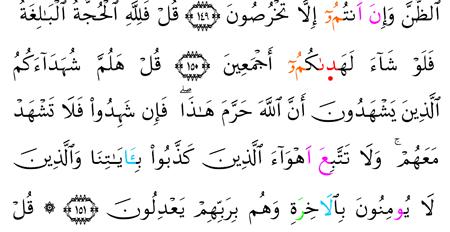 اَ۬لظَّنَّ وَإِنَ اَنتُمُۥٓ إِلَّا تَخْرُصُونَ ١٤٩ قُلْ فَلِلَّهِ اِ۬لْحُجَّةُ اُ۬لْبَٰلِغَةُ
فَلَوْ شَآءَ لَهَد۪ىٰكُمُۥٓ أَجْمَعِينَ ١٥٠ قُلْ هَلُمَّ شُهَدَآءَكُمُ
اُ۬لَّذِينَ يَشْهَدُونَ أَنَّ اَ۬للَّهَ حَرَّمَ هَٰذَاۖ فَإِن شَهِدُواْ فَلَا تَشْهَدْ
مَعَهُمْۚ وَلَا تَتَّبِعَ اَهْوَآءَ اَ۬لَّذِينَ كَذَّبُواْ بِـَٔايَٰتِنَا وَالَّذِينَ
لَا يُومِنُونَ بِالَاخِرَةِ وَهُم بِرَبِّهِمْ يَعْدِلُونَ ١٥١ ۞ قُلْ